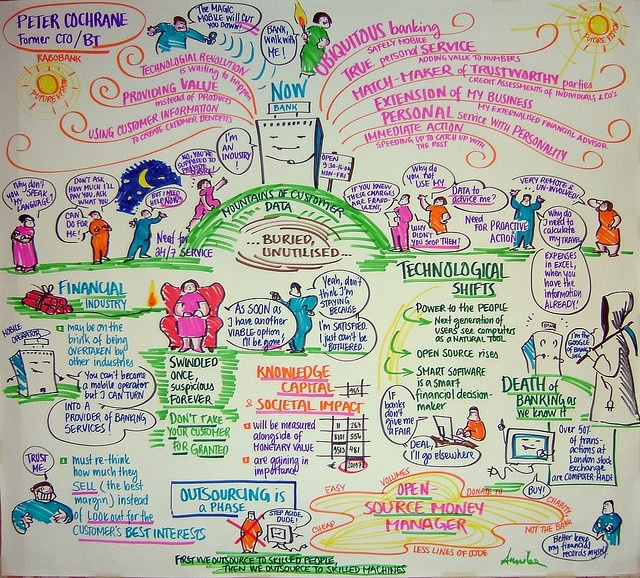 PETER COCHRANE
FORMER CTO/BT
RABOBANK
FUTURE VISION
THE MAGIC
MOBILE WILL CUT
YOU DOWN!
BANK,
WALK WITH
ME!
UBIQUITOUS banking
SAFELY MOBILE
TRUE personal SERVICE
ADDING VALUE TO NUMBERS
MATCH-MAKER of TRUSTWORTHY parties
CREDIT ASSESSMENTS OF INDIVIDUALS & CO'S
EXTENSION OF MY BUSINESS
MY EXTERNALISED FINANCIAL ADVISOR
PERSONAL service with PERSONALITY
IMMEDIATE ACTION
SPEEDING UP TO CATCH UP WITH
THE REST
FUTURE VISION
TECHNOLOGICAL REVOLUTION
is waiting to happen
PROVIDING VALUE
instead of PRODUCTS
USING CUSTOMER INFORMATION
TO CREATE CUSTOMER BENEFITS
NOW
BANK
I'M AN
INDUSTRY!
OPEN
9:30-16:00
MON-FRI
Why don't
you SPEAK
MY LANGUAGE?
DON'T ASK
HOW MUCH I'LL
PAY YOU, ASK
WHAT YOU
CAN
DO FOR
ME!
NO, YOU'RE
SUPPOSED TO
BUT I NEED
HELP NOW!
Need for
24/7 SERVICE
MOUNTAINS OF CUSTOMER
DATA
... BURIED,
UNUTILISED...
IF YOU KNEW
THESE CHARGES
ARE FRAUD-
ULENT,
WHY
DIDN'T
YOU STOP THEM?
Why do
you not
USE MY
DATA to
advise me?
NEED
FOR PROACTIVE
ACTION
VERY REMOTE &
UN-INVOLVED!
Why do
I need to
calculate
my TRAVEL
EXPENSES
IN EXCEL,
WHEN YOU
HAVE THE
INFORMATION
ALREADY!
FINANCIAL
INDUSTRY
MOBILE
OPERATOR
may be on the
brink of being
OVERTAKEN by
other industries
You can't become
a mobile operator
but I CAN TURN
INTO A
PROVIDER OF BANKING
SERVICES!
TRUST
ME.
must re-think
how much they
SELL (the best
margin) instead
of LOOK OUT FOR THE
CUSTOMER'S BEST INTERESTS
AS SOON AS
I have another
VIABLE option
I'll be gone!
Yeah, don't
think I'm
STAYING
BECAUSE
I'm SATISFIED.
I just can't be
BOTHERED.
SWINDLED
ONCE,
suspicious
FOREVER
DON'T TAKE
YOUR CUSTOMER
FOR GRANTED
KNOWLEDGE
CAPITAL
& SOCIETAL IMPACT
will be measured
alongside of
MONETARY VALUE
are gaining in
importance!
TECHNOLOGICAL
SHIFTS
POWER to the PEOPLE
Next generation of
users see computers
as a NATURAL TOOL
OPEN SOURCE rises
SMART SOFTWARE
is a smart
financial decision-
maker
IF
banks
don't
give me
a FAIR
DEAL,
I'll go elsewhere
I'm the
GOOGLE
OF BANK-
ING
DEATH of
BANKING as
we know it
Over 50%
of trans-
actions at
London stock
exchange
are COMPUTER-MADE
BUY!
OUTSOURCING is
a PHASE
STEP ASIDE,
DUDE!
FIRST WE OUTSOURCE TO SKILLED PEOPLE,
THEN WE OUTSOURCE TO SKILLED MACHINES
OPEN-
SOURCE MONEY
MANAGER
EASY
VOLUMES
DONATE TO
CHARITY
NOT THE BANK
CHEAP
LESS LINES OF CODE
Better keep
my financial
records myself